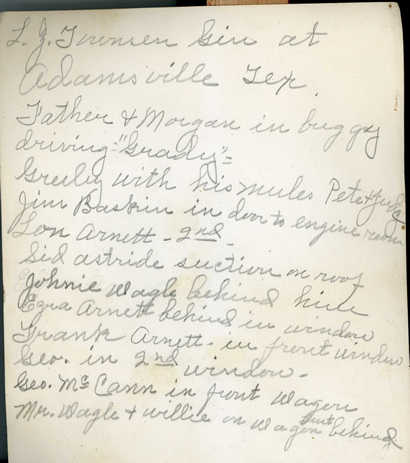 L. J. Townsen Gin at
Adamsville Tex.
Father & Morgan in buggy
driving "Grady"=
Greeley with his mules Pete & Jude
Jim Baskin in door to engine room
Lon Arnett - 2nd -
Sid astride suction on roof
Johnie Wagle behind him
Ezra Arnett behind in window
Frank Arnett - in front window
Geo. in 2nd window -
Geo. McCann in front wagon
Mr. Wagle & Willie on wagon behind